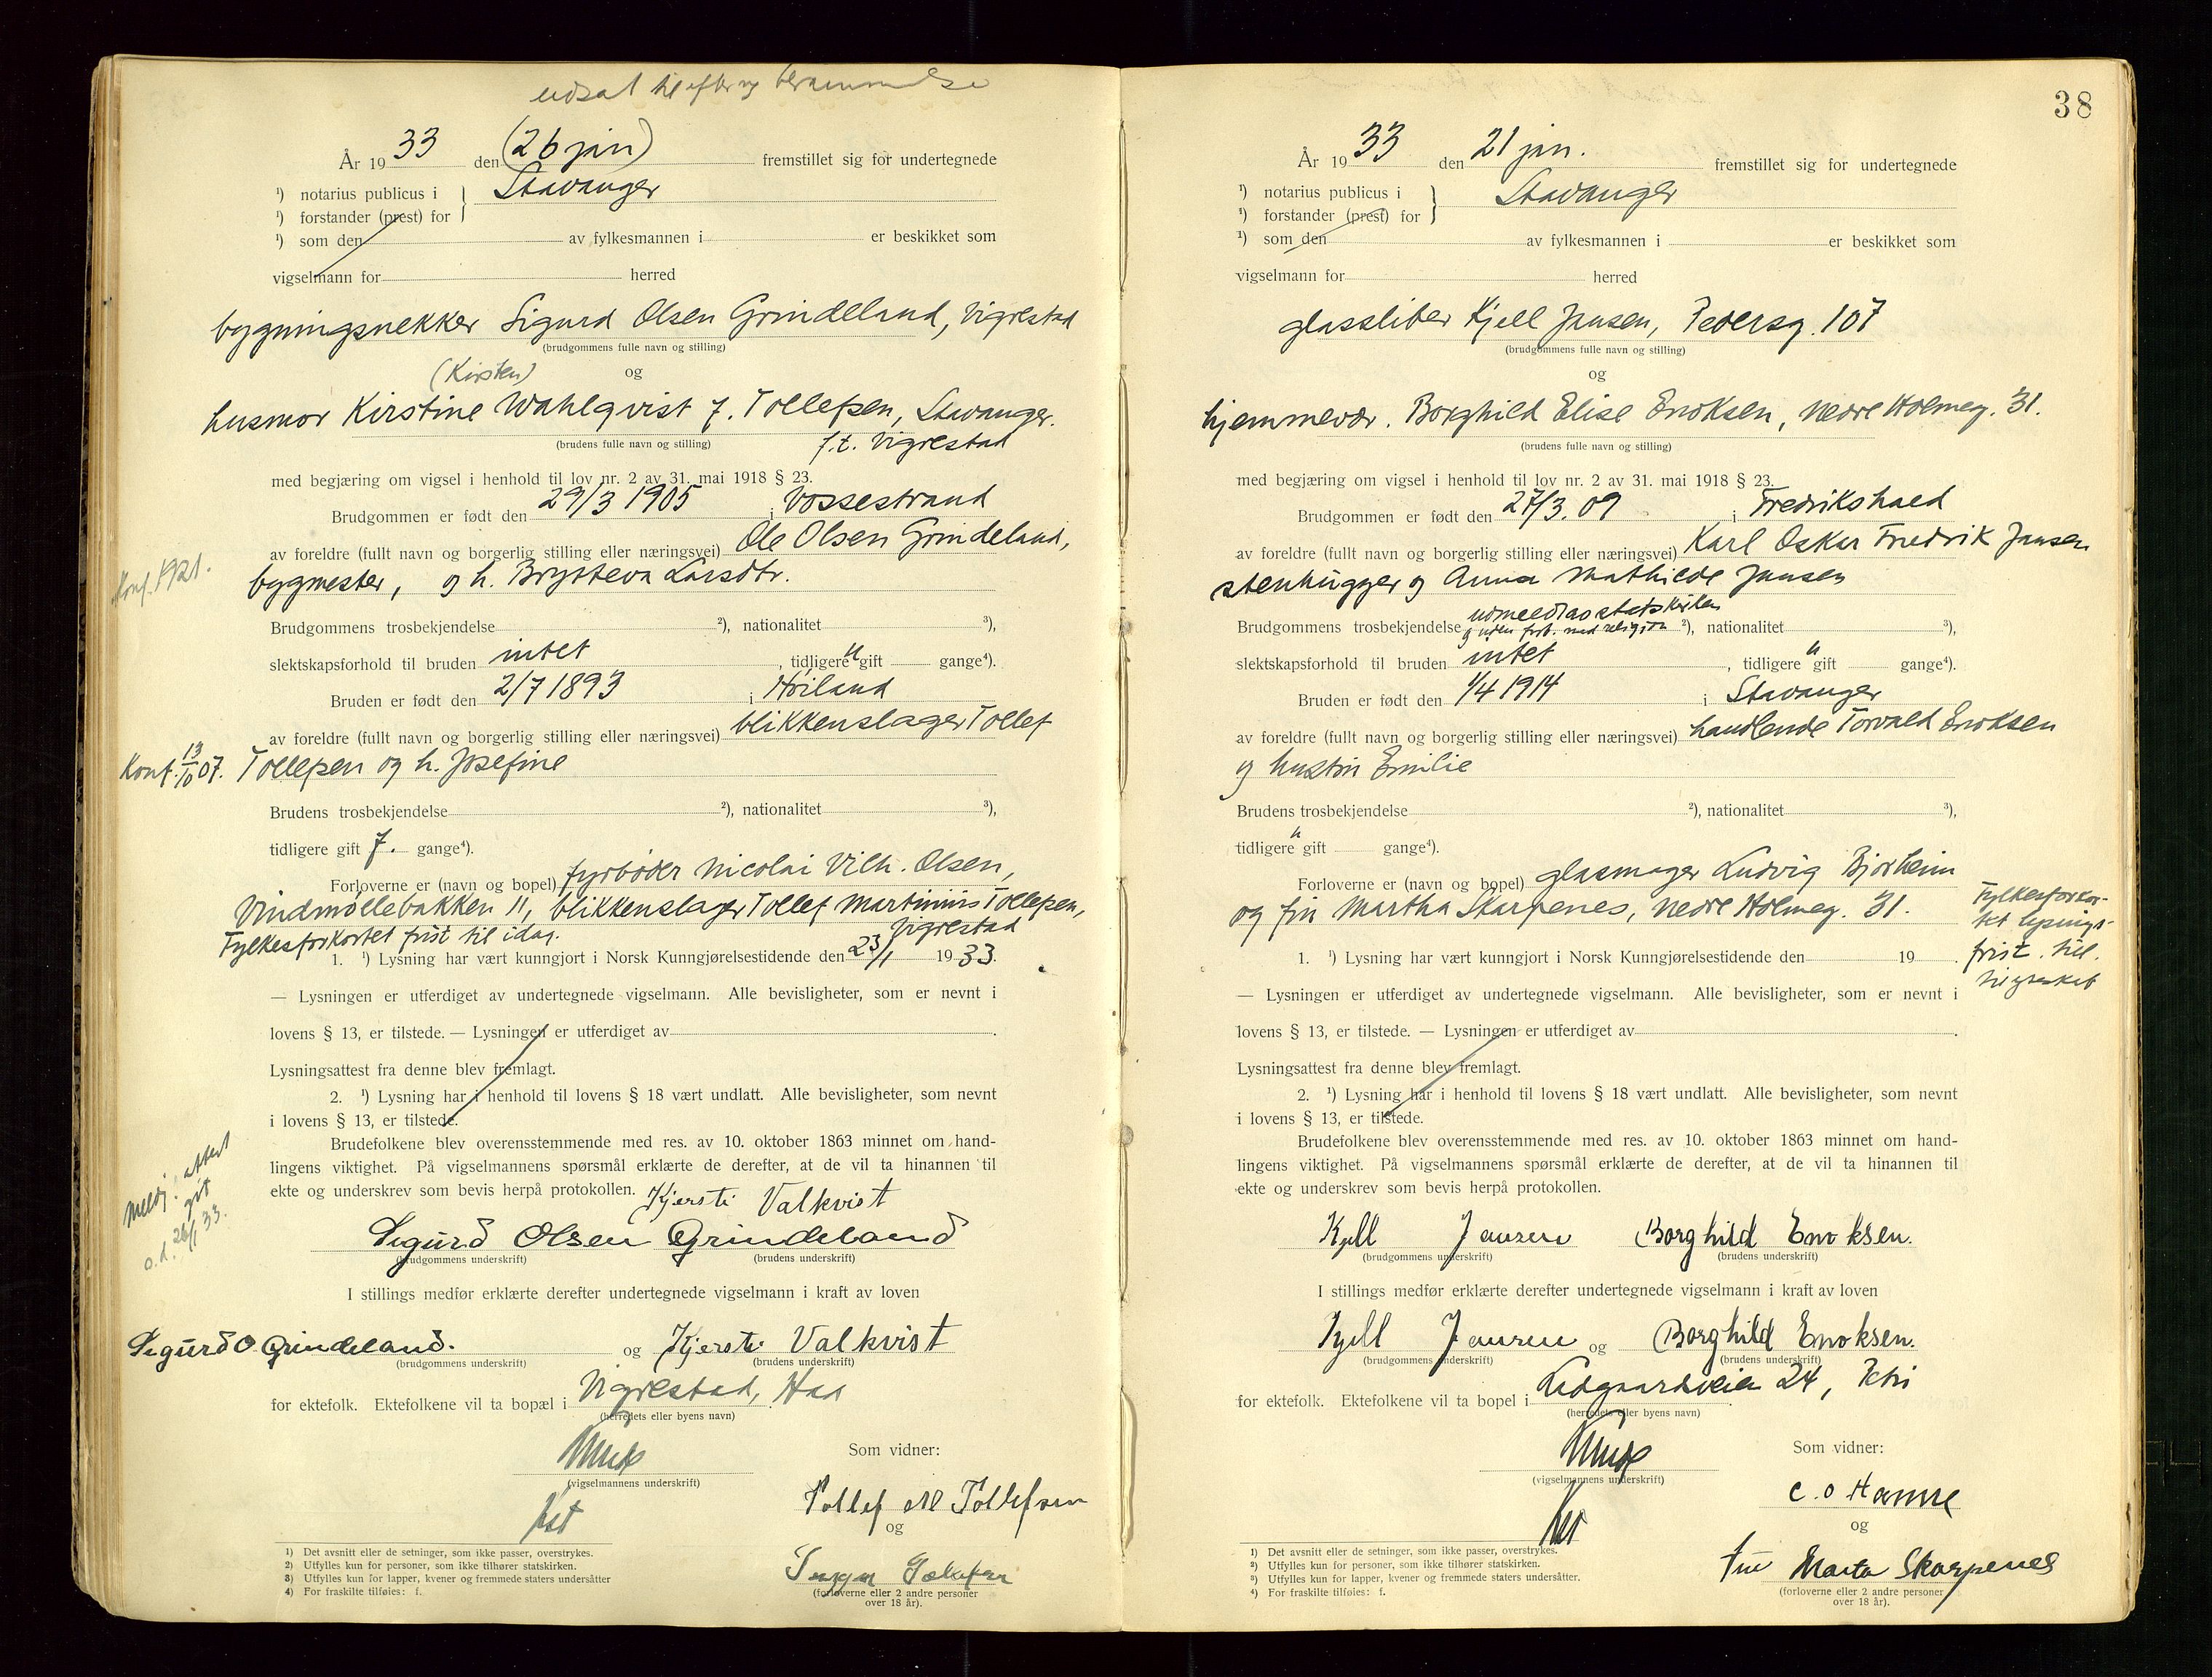 udsat til
År 1933 den (26 jan) fremstillet sig for undertegnede
¹) notarius publicus i } Stavanger
¹) forstander (prest) for
¹) som den av fylkesmannen i er beskikket som
vigselmann for herred
bygningsnekker Sigurd Olsen Grindeland, Vigrestad
(brudgommens fulle navn og stilling)
(Kirsten) og
husmor Kirstine Wahlqvist f. Tollefsen, Stavanger.
(brudens fulle navn og stilling) f.t. Vigrestad
med begjæring om vigsel i henhold til lov nr. 2 av 31. mai 1918 § 23.
Brudgommen er født den 29/3 1905 i Vossestrand
av foreldre (fullt navn og borgerlig stilling eller næringsvei) Ole Olsen Grindeland,
Konf. 1921.
bygmester, og h. Brytteva Larsdtr.
Brudgommens trosbekjendelse ²), nationalitet ³),
slektskapsforhold til bruden intet , tidligere " gift gange⁴).
Bruden er født den 2/7 1893 i Høiland
av foreldre (fullt navn og borgerlig stilling eller næringsvei) blikkenslager Tollef
Konf. 13/10 07. Tollefsen og h. Josefine
Brudens trosbekjendelse ²), nationalitet ³),
tidligere gift f. gange⁴).
Forloverne er (navn og bopel) fyrbøder Nicolai Vilh. Olsen,
Vindmøllebakken 11, blikkenslager Tollef Martinius Tollefsen,
Fylkesforkortet frist til idag. Vigrestad
1. ¹) Lysning har vært kunngjort i Norsk Kunngjørelsestidende den 23/1 1933.
— Lysningen er utferdiget av undertegnede vigselmann. Alle bevisligheter, som er nevnt i
lovens § 13, er tilstede. — Lysningen er utferdiget av
Lysningsattest fra denne blev fremlagt.
2. ¹) Lysning har i henhold til lovens § 18 vært undlatt. Alle bevisligheter, som nevnt
i lovens § 13, er tilstede.
Brudefolkene blev overensstemmende med res. av 10. oktober 1863 minnet om hand-
lingens viktighet. På vigselmannens spørsmål erklærte de derefter, at de vil ta hinannen til
ekte og underskrev som bevis herpå protokollen. Kjersti Valkvist
Meldj. attest
git
o.d. 26/1 33.
Sigurd Olsen Grindeland
(brudgommens underskrift) (brudens underskrift)
I stillings medfør erklærte derefter undertegnede vigselmann i kraft av loven
Sigurd O. Grindeland. og Kjersti Valkvist
(brudgommens underskrift) (brudens underskrift)
for ektefolk. Ektefolkene vil ta bopæl i Vigrestad, Haa
(herredets eller byens navn)
Som vidner:
(vigselmannens underskrift)
Tollef M Tollefsen
og
(forloverne eller 2 andre personer
over 18 år).
1) Det avsnitt eller de setninger, som ikke passer, overstrykes.
2) Utfylles kun for personer, som ikke tilhører statskirken.
3) Utfylles kun for lapper, kvener og fremmede staters undersåtter
4) For fraskilte tilføies: f.
38
År 1933 den 21 jan. fremstillet sig for undertegnede
¹) notarius publicus i } Stavanger
¹) forstander (prest) for
¹) som den av fylkesmannen i er beskikket som
vigselmann for herred
glassliber Kjell Jansen, Pedersg. 107
(brudgommens fulle navn og stilling)
og
hjemmevær. Borghild Elise Enoksen, Nedre Holmeg. 31.
(brudens fulle navn og stilling)
med begjæring om vigsel i henhold til lov nr. 2 av 31. mai 1918 § 23.
Brudgommen er født den 27/3. 09 i Fredrikshald
av foreldre (fullt navn og borgerlig stilling eller næringsvei) Karl Oskar Fredrik Jansen
stenhugger og Anna Mathilde Jansen
utmeldt av statskirken
Brudgommens trosbekjendelse og uten forb. med religion ²), nationalitet ³),
slektskapsforhold til bruden intet , tidligere " gift gange⁴).
Bruden er født den 1/4 1914 i Stavanger
av foreldre (fullt navn og borgerlig stilling eller næringsvei) handlende Torvald Enoksen
og hustru Emilie
Brudens trosbekjendelse ²), nationalitet ³),
tidligere " gift gange⁴).
Forloverne er (navn og bopel) glasmager Ludvig Bjorheim
og fru Martha Skarpenes, Nedre Holmeg. 31.
Fylkesforkor-
tet lysnings-
frist. till.
1. ¹) Lysning har vært kunngjort i Norsk Kunngjørelsestidende den 19 .
— Lysningen er utferdiget av undertegnede vigselmann. Alle bevisligheter, som er nevnt i
lovens § 13, er tilstede. — Lysningen er utferdiget av .
Lysningsattest fra denne blev fremlagt.
2. ¹) Lysning har i henhold til lovens § 18 vært undlatt. Alle bevisligheter, som nevnt
i lovens § 13, er tilstede.
Brudefolkene blev overensstemmende med res. av 10. oktober 1863 minnet om hand-
lingens viktighet. På vigselmannens spørsmål erklærte de derefter, at de vil ta hinannen til
ekte og underskrev som bevis herpå protokollen.
Kjell Jansen Borghild Enoksen.
(brudgommens underskrift) (brudens underskrift)
I stillings medfør erklærte derefter undertegnede vigselmann i kraft av loven
Kjell Jansen og Borghild Enoksen.
(brudgommens underskrift) (brudens underskrift)
for ektefolk. Ektefolkene vil ta bopel i Ledgaardsveien 24, Petri
(herredets eller byens navn)
Som vidner:
(vigselmannens underskrift)
C. O Hamre
og
fru Marta Skarpenes
(forloverne eller 2 andre personer
over 18 år).
1) Det avsnitt eller de setninger, som ikke passer, overstrykes.
2) Utfylles kun for personer, som ikke tilhører statskirken.
3) Utfylles kun for lapper, kvener og fremmede staters undersåtter.
4) For fraskilte tilføies: f.